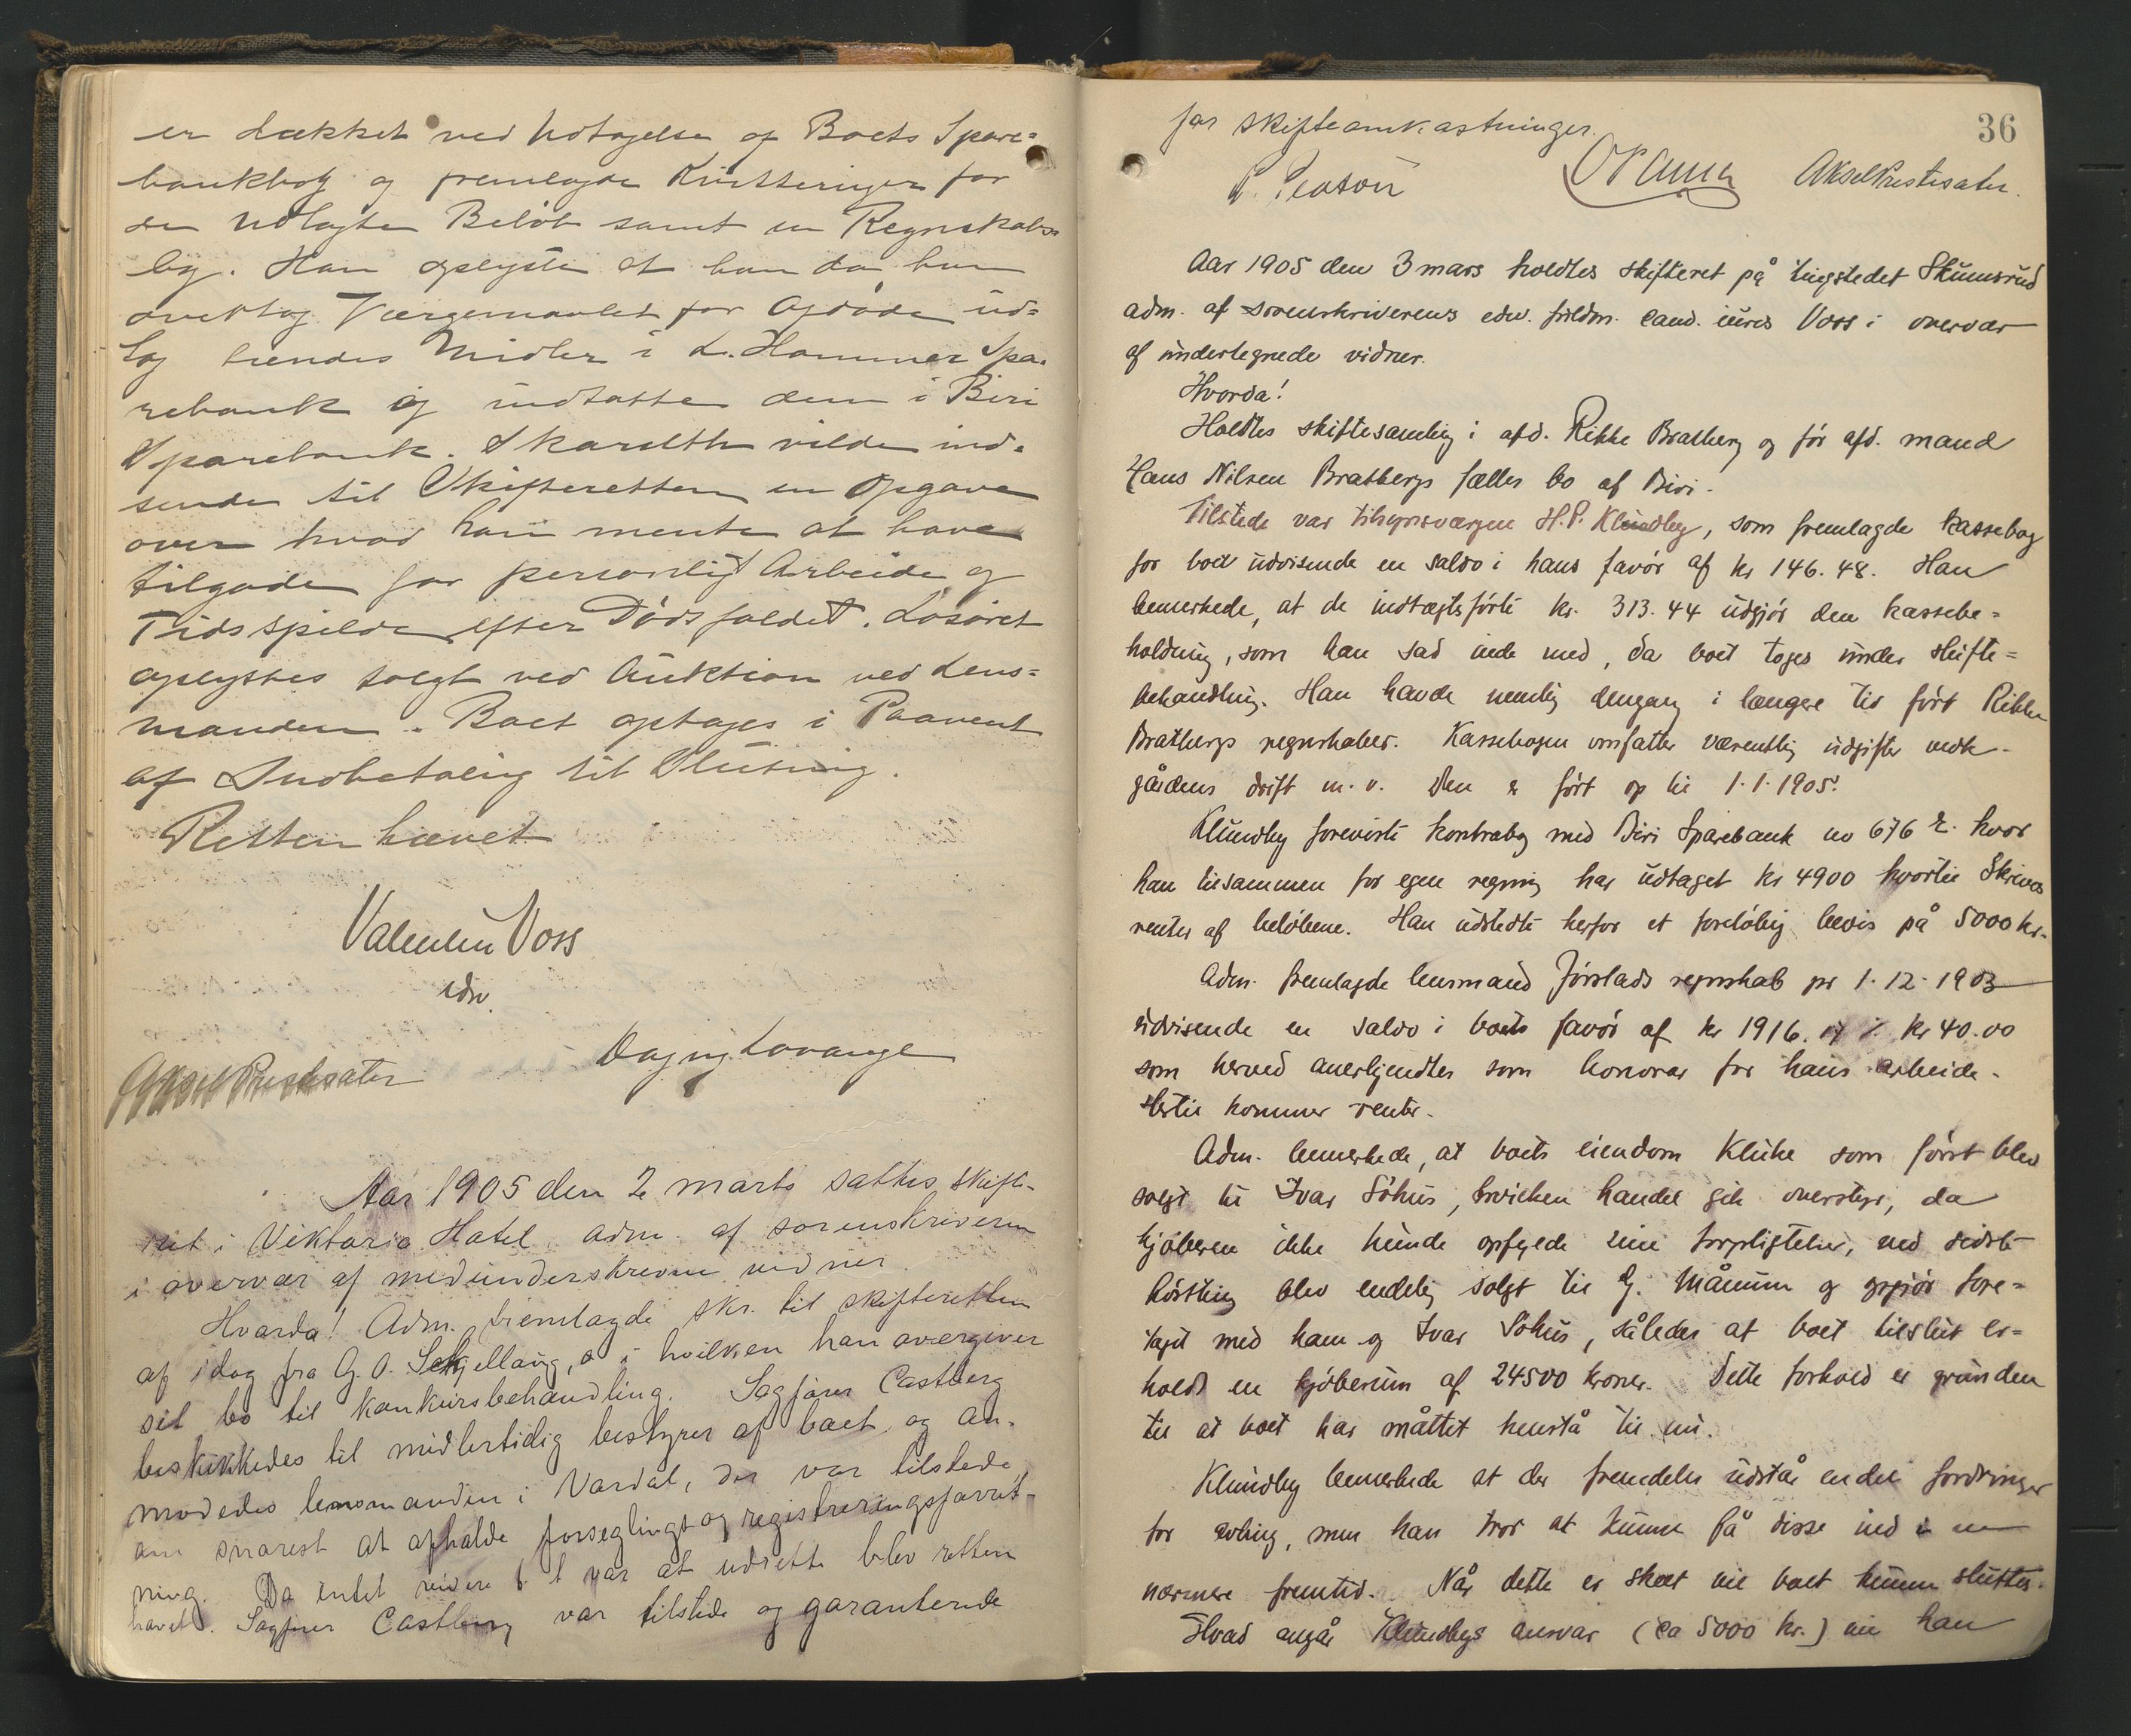 er dækket ved Udtagelse af Boets Spare=
bankbog og fremlagde Kvitteringer for
de udlagte Beløb samt en Regnskabs
bog. Han oplyste at han da han
overtog Værgemaalet for Afdøde ud=
tog hendes Midler i L. Hammer Spa=
rebank og indsatte dem i Biri
Sparebank. Skarseth vilde ind=
sende til Skifteretten en Opgave
over hvad han mente at have
tilgode for personligt Arbeide og
Tidsspilde efter Dødsfaldet. Løsøret
oplystes solgt ved Auktion ved Lens=
manden. Boet optages i Paavent
af Indbetaling til Slutning.
Retten hævet
Valentin Voss
edsv.
Aksel Prestesæter
Dagny Lovange
Aar 1905 den 2 marts sattes skifte-
ret i Viktoria Hotel adm. af sorenskriveren
i overvær af medunderskrevne vidner.
Hvorda! Adm. fremlagde skr. til skifteretten
af idag fra G. O. Schjellaug, i hvilken han overgiver
sit bo til konkursbehandling. Sagfører Castberg
beskikkedes til midlertidig bestyrer af boet og an-
modedes lensmanden i Vardal, der var tilstede
om snarest at afholde forseglings og registreringsforret-
ning. Da intet videre var at udrette blev retten
hævet. Sagfører Castberg var tilstede og garanterede
36
for skifteomkastninger.
Aksel Prestesæter.
Aar 1905 den 3 mars holdtes skifteret på tingstedet Skumsrud
adm. af sorenskriverens edsv. fuldm. cand. iuris Voss i overvær
af undertegnede vidner.
Hvorda!
Holdtes skiftesamling i afd. Rikke Bratberg og før afd. mand
Hans Nilsen Bratbergs fælles bo af Biri.
Tilstede var tilsynsværgen H.P. Klundby, som fremlagde kassebog
for boet udvisende en saldo i hans favør af kr 146.48. Han
bemerkede, at de indtægtsførte kr. 313.44 udgjør den kassebe=
holdning, som han sad inde med, da boet toges under skifte=
behandling. Han havde nemlig dengang i længere tid ført Rikke
Bratbergs regnskaber. Kassebogen omfatter væsentlig udgifter vedk.
gårdens drift m.v. Den er ført op til 1.1.1905.
Klundby foreviste kontrabog med Biri Sparebank no 676 hvor
han tilsammen for egen regning har udtaget kr 4900 hvortil
renter af beløbene. Han udstedte herfor et foreløbig bevis på 5000 kr.
Adm. fremlagde lensmand Jørstads regnskab pr 1.12.1903
udvisende en saldo i boets favør af kr 1916. ÷ kr 40.00
som herved anerkjendtes som honorar for hans arbeide.
Hertil kommer renter.
Adm. bemerkede, at boets eiendom Kluke som først blev
solgt til Ivar Søhus, hvilken handel gik overstyr, da
kjøberen ikke kunde opfylde sine forpligtelser, ved sidste
høstting blev endelig solgt til G. Månum og opgjør fore=
taget med ham og Ivar Søhus, således at boet tilslut er=
holdt en kjøbesum af 24500 kroner. Dette forhold er grunden
til at boet har måttet henstå til nu.
Klundby bemerkede at der fremdeles udstår endel fordringer
for avling, men han tror at kunne få disse ind i en
nærmere fremtid. Når dette er skeet vil boet kunne sluttes.
Hvad angår Klundbys ansvar (ca 5000 kr.) vil han